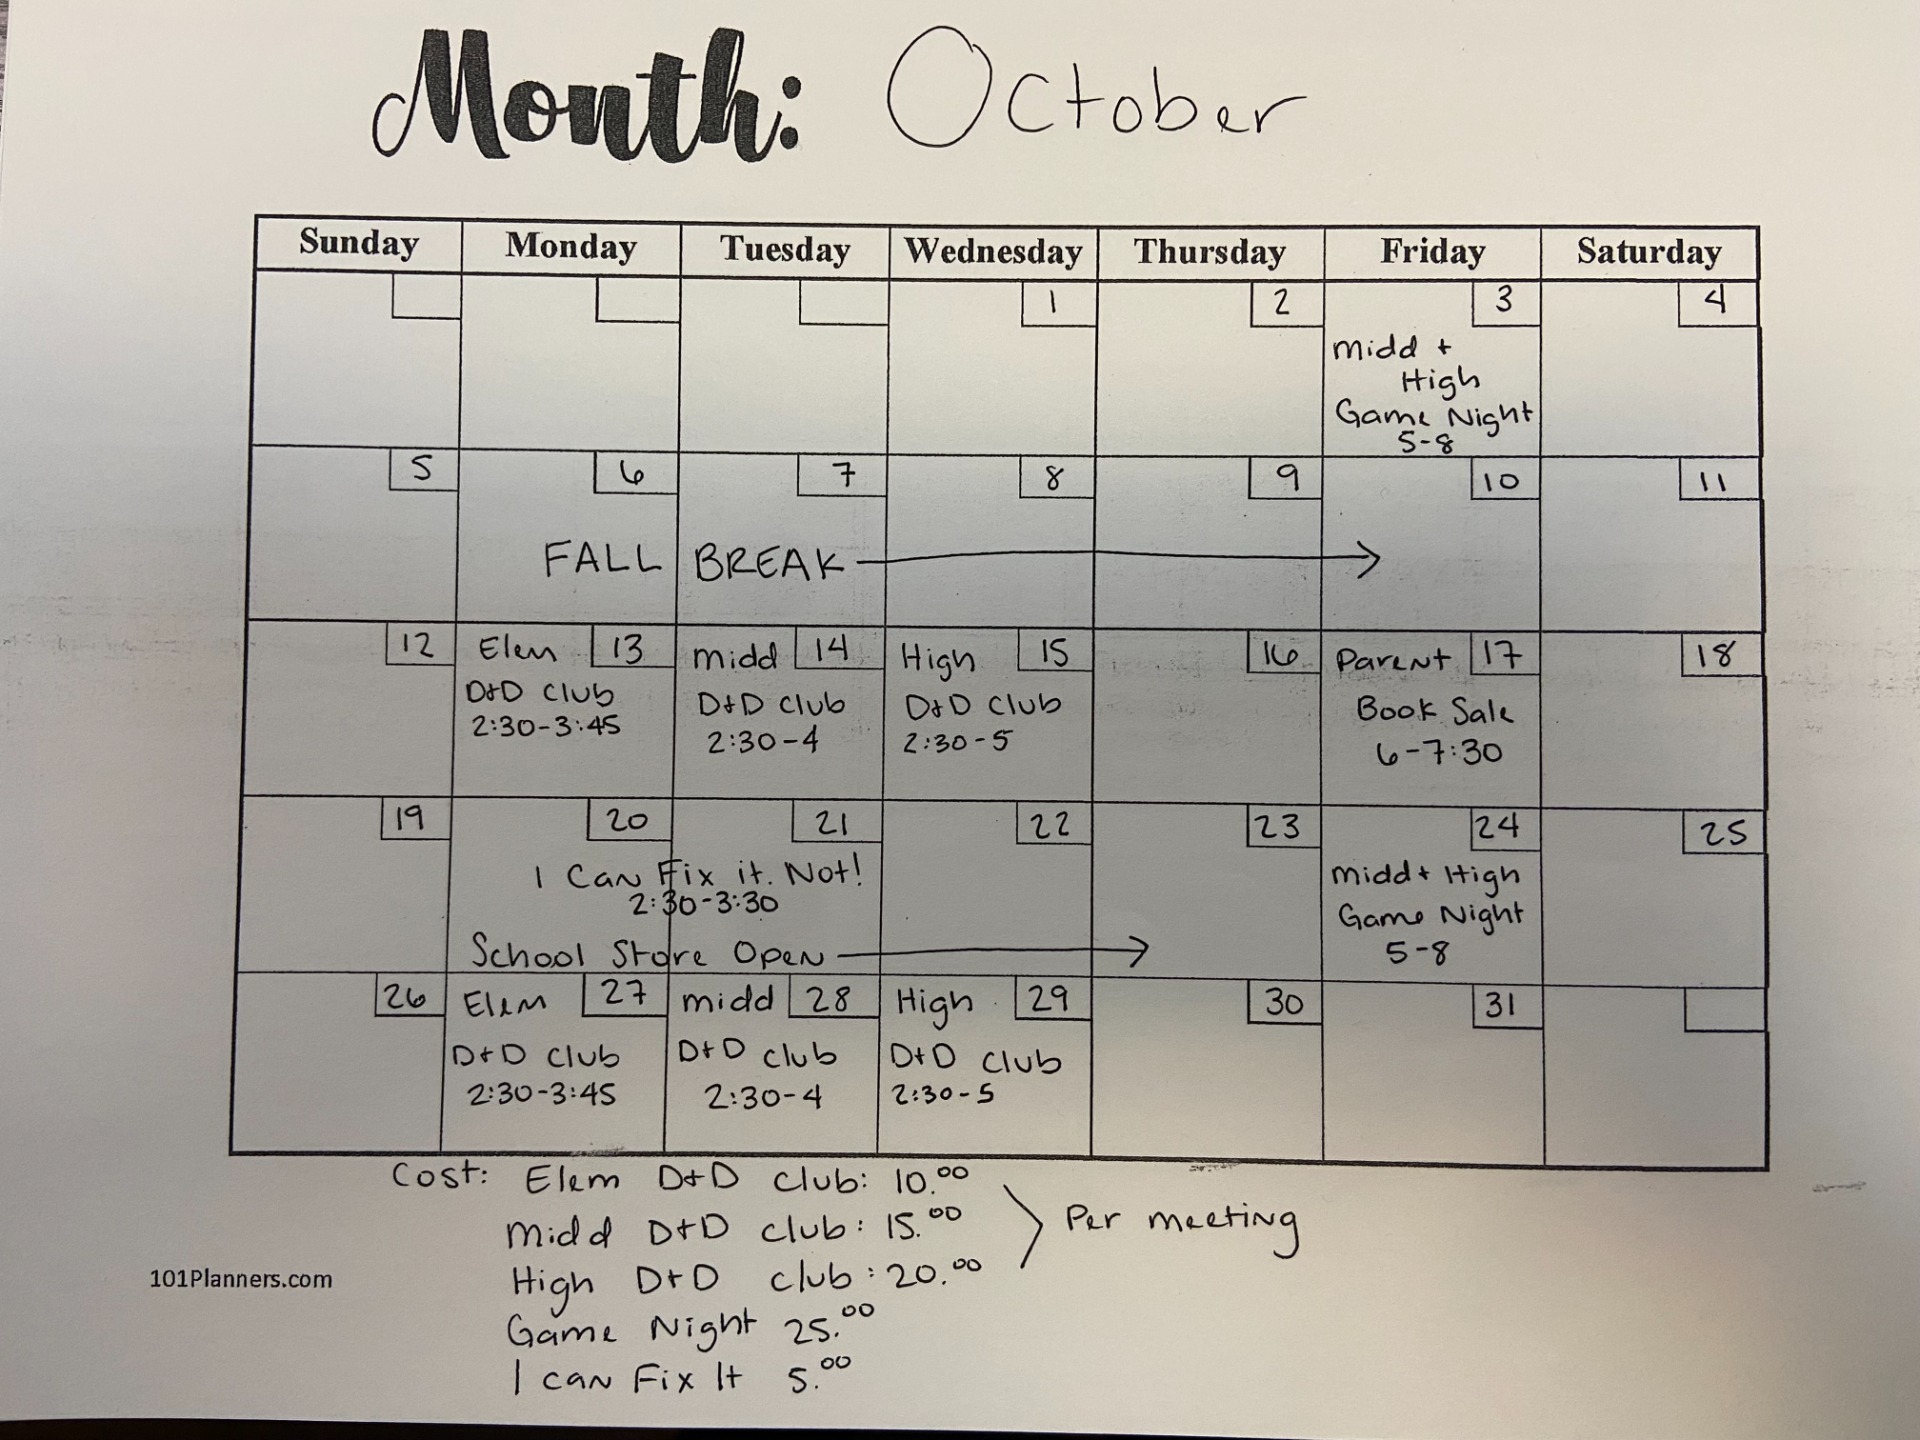 Month: October
Sunday Monday Tuesday Wednesday Thursday Friday Saturday
1 2 3 4
Midd +
High
Game Night
5-8
5 6 7 8 9 10 11
FALL BREAK
12 Elem 13 Midd 14 High 15 16 Parent 17 18
D+D Club D+D Club D+D Club Book Sale
2:30-3:45 2:30-4 2:30-5 6-7:30
19 20 21 22 23 24 25
I Can Fix it. Not! Midd + High
2:30-3:30 Game Night
School Store Open 5-8
26 Elem 27 Midd 28 High 29 30 31
D+D Club D+D Club D+D Club
2:30-3:45 2:30-4 2:30-5
Cost: Elem D+D Club: 10.00
Midd D+D Club: 15.00 Per meeting
High D+D Club: 20.00
101Planners.com
Game Night 25.00
I can Fix It 5.00